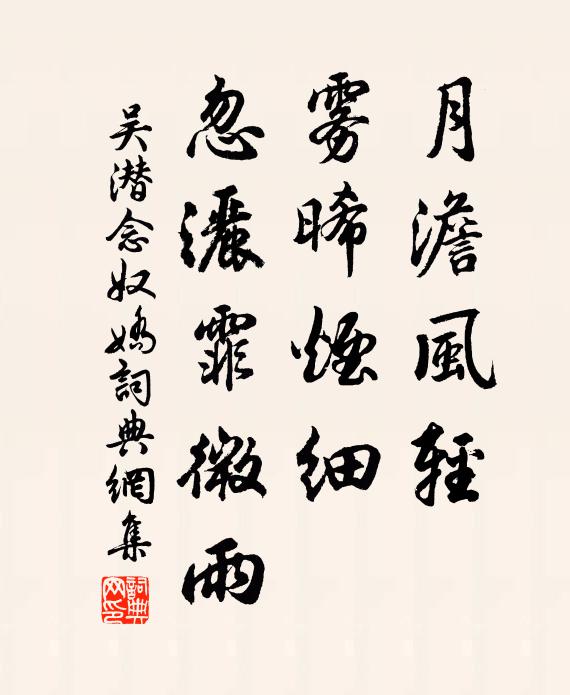 月澹風輕
霧晞煙細
忽灑霏微雨
吴潜念奴嬌詞典網集
詞典网印